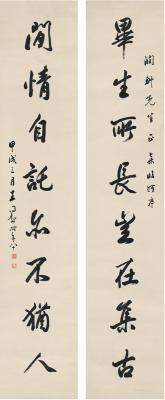 畢生所長豈在集古
潤軒先生正 集臨河序
閒情自託亦不猶人
甲戌三月王同愈時年八十